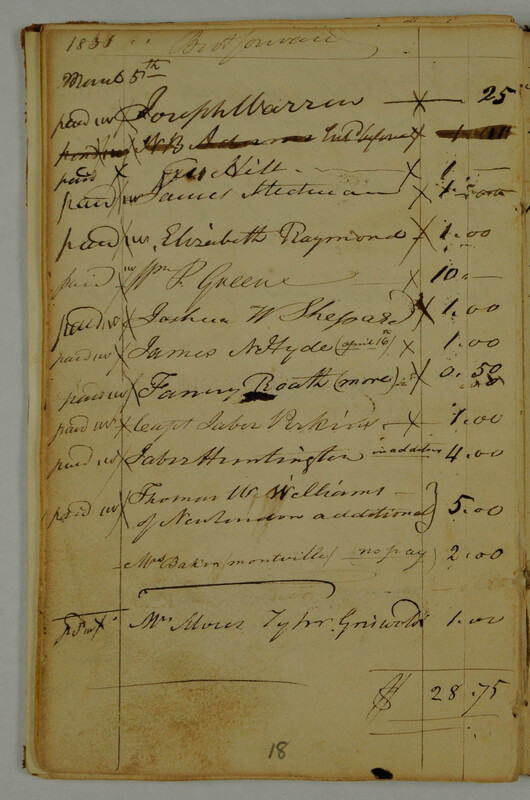 1831 .. Brot forward
March 5th
paid Joseph Warren X 25
N B Adams before X 1
paid X Hill - X 1 -
paid James Stedman X 1
paid Elizabeth Raymond X 1.00
paid Wm P. Greene X 10 -
paid Joshua W Shepard X 1.00
paid James N Hyde (april 16th) X 1.00
paid Fanny Roath (more) X 0.50
paid X Capt Jabez Perkins X 1.00
paid Jabez Huntington in addition 4.00
Thomas W. Williams -
paid of New London additional } 5.00
- Mrs Baker (montville) (no pay) 2.00
Mrs Moses Tyler Griswold 1.00
$ 28.75
18